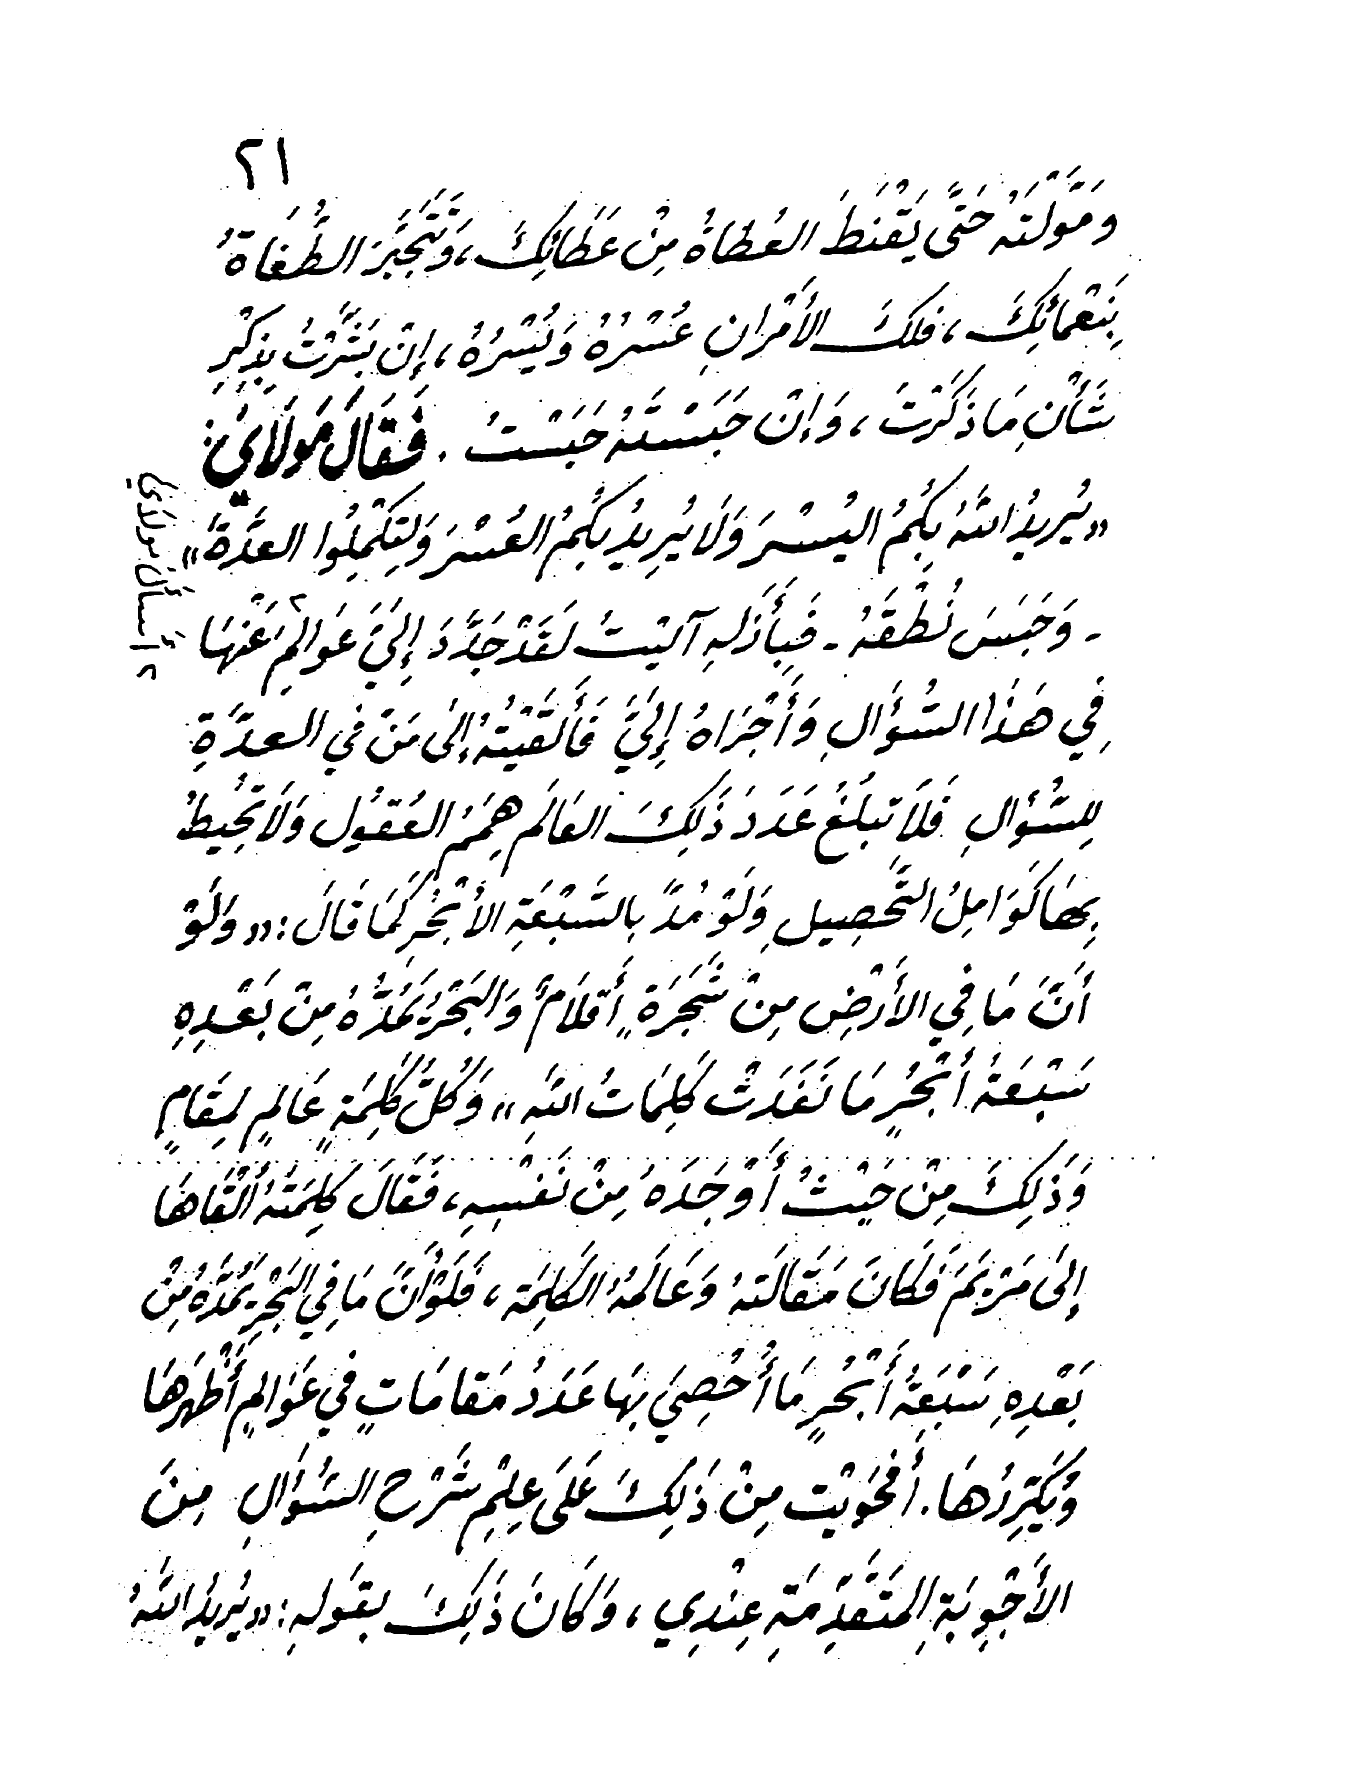 ٢١
وَمَوَّلْتَهُ حَتَّى يَقْنَطَ العُطَاةُ مِنْ عَطَائِكَ، وَتَتَجَبَّرَ الطُّغَاةُ
بِنَعْمَائِكَ، فَلَكَ الأَمْرَانِ عُسْرُهُ وَيُسْرُهُ، إِنْ يَسَّرْتُ بِذِكْرِ
شَأْنِ مَا ذَكَرْتَ، وَإِنْ حَبَسْتَهُ حَبَسْتُ. فَقَالَ مَوْلَايَ:
«يُرِيدُ اللهُ بِكُمُ اليُسْرَ وَلَا يُرِيدُ بِكُمُ العُسْرَ وَلِتُكْمِلُوا العِدَّةَ»
- وَحَبَسَ نُطْقَهُ - فَبِأَزَلِهِ آلَيْتُ لَقَدْ جَدَّدَ إِلَيَّ عَوَالِمَ٢ عَنْهَا
فِي هَذَا السُّؤَالِ وَأَجْرَاهُ إِلَيَّ فَأَلْقَيْتُهُ إِلَى مَنْ فِي العِدَّةِ
لِلسُّؤَالِ فَلَا تَبْلُغُ عَدَدَ ذَلِكَ العَالَمِ هِمَمُ العُقُولِ وَلَا تُحِيطُ
بِهَا كَوَامِلُ التَّحْصِيلِ وَلَوْ مُدَّ بِالسَّبْعَةِ الأَبْحُرِ كَمَا قَالَ: «وَلَوْ
أَنَّ مَا فِي الأَرْضِ مِنْ شَجَرَةٍ أَقْلَامٌ وَالبَحْرُ يَمُدُّهُ مِنْ بَعْدِهِ
سَبْعَةُ أَبْحُرٍ مَا نَفَدَتْ كَلِمَاتُ اللهِ» وَكُلُّ كَلِمَةٍ عَالَمٍ لِمَقَامٍ
وَذَلِكَ مِنْ حَيْثُ أَوْجَدَهُ مِنْ نَفْسِهِ، فَقَالَ كَلِمَتُهُ أَلْقَاهَا
إِلَى مَرْيَمَ فَكَانَ مَقَالَتَهُ وَعَالَمُهُ الكَلِمَة، فَلَوْ أَنَّ مَا فِي البَحْرِ يَمُدُّهُ مِنْ
بَعْدِهِ سَبْعَةُ أَبْحُرٍ مَا أُحْصِيَ بِهَا عَدَدُ مَقَامَاتٍ فِي عَوَالِمٍ أَظْهَرَهَا
وَيُكَرِّرُهَا. أَفَحَوَيْت مِنْ ذَلِكَ عَلَى عِلْمِ شَرْحِ السُّؤَالِ مِنَ
الأَجْوِبَةِ المُتَقَدِّمَةِ عِنْدِي، وَكَانَ ذَلِكَ بِقَوْلِهِ: «يُرِيدُ اللهُ
٢ أسأل مولاي